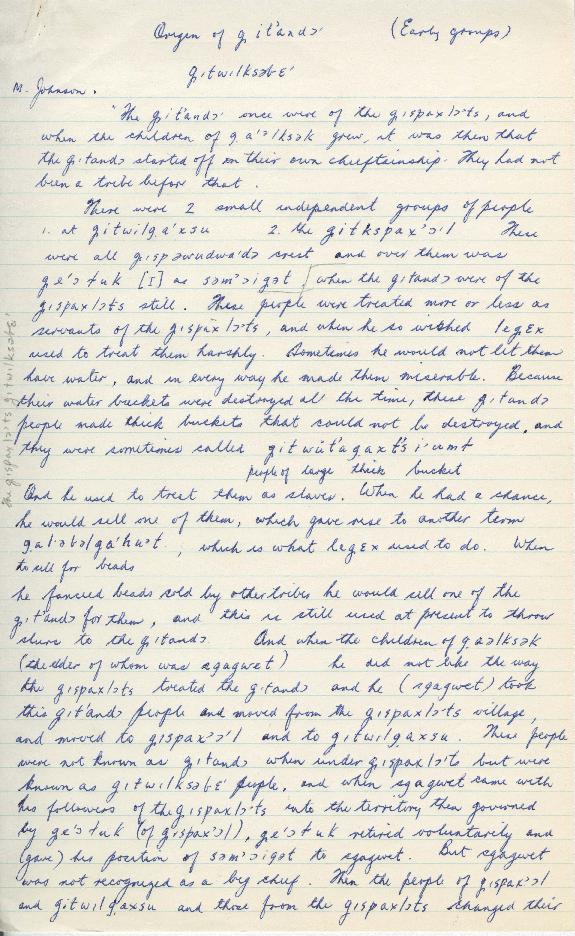 Origin of g̣it'andɔ' (Early groups)
g̣itwilksəbɛ'
M. Johnson.
"The g̣it'andɔ' once were of the g̣ispaxlɔ'ts, and
when the children of g̣a'ɔlksək grew, it was then that
the g̣itandɔ started off on their own chieftainship. They had not
been a tribe before that.
There were 2 small independent groups of people
1. at g̣itwilg̣a'xsu 2. the g̣itkspaxɔ'l These
were all g̣ispəwudwa'dɔ crest and over them was
g̣e'ɔɫuk [I] as səm'ɔig̣ət [when the g̣itandɔ were of the
g̣ispaxlɔts still. These people were treated more or less as
servants of the g̣ispaxlɔ'ts, and when he so wished legɛx
used to treat them harshly. Sometimes he would not let them
have water, and in every way he made them miserable. Because
their water buckets were destroyed all the time, these g̣itandɔ
people made thick buckets that could not be destroyed, and
they were sometimes called
people of large thick bucket
And he used to treat them as slaves. When he had a chance,
he would sell one of them, which gave rise to another term
; which is what legɛx used to do. When
to sell for beads
he fancied beads sold by other tribes he would sell one of the
g̣it'andɔ for them, and this is still used at present to throw
slurs to the g̣itandɔ. And when the children of g̣aəlksək
(the elder of whom was sg̣agwet) he did not like the way
the g̣ispaxlɔts treated the g̣itandɔ and he (sg̣agwet) took
this g̣it'andɔ people and moved from the g̣ispaxlɔts village,
and moved to g̣ispax'ɔ'l and to g̣itwilg̣axsu. These people
were not known as g̣itandɔ when under g̣ispaxlɔ'ts but were
known as g̣itwilksəbɛ' people, and when sg̣agwet came with
his followers of the g̣ispaxlɔ'ts into the territory then governed
by g̣e'ɔɫuk (of g̣ispax'ɔl), g̣e'ɔɫuk retired voluntarily and
(gave) his position of səm'ɔig̣ət to sg̣agwet. But sg̣agwet
was not recognized as a big chief. Then the people of g̣ispax'ɔl
and g̣itwilg̣axsu and those from the g̣ispaxlɔts changed their
the g̣ispaxlɔ'ts g̣itwilksəbɛ'